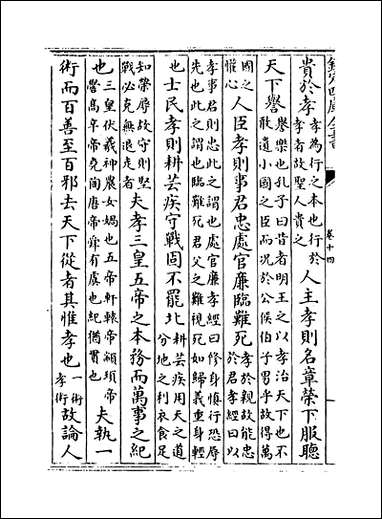 欽定四庫全書
卷十四
貴於孝孝為行之本也行於孝者故聖人貴之人主孝則名章榮下服聽
天下譽譽樂也孔子曰昔者明王之以孝治天下也不敢遺小國之臣而況於公侯伯子男乎故得萬
國之懽心人臣孝則事君忠處官廉臨難死孝於親故能忠於君孝經曰以
孝事君則忠此之謂也處官廉孝經曰修身慎行恐辱先也此之謂也臨難死君父之難視死如歸義重身輕
也士民孝則耕芸疾守戰固不罷北耕芸疾用天之道分地之利衣食足
知榮辱故守則堅戰必克無退走者夫孝三皇五帝之本務而萬事之紀
也三皇伏羲神農女媧也五帝軒轅帝顓頊帝嚳高辛帝堯陶唐帝舜有虞也紀猶貫也夫執一
術而百善至百邪去天下從者其惟孝也一術孝術故論人